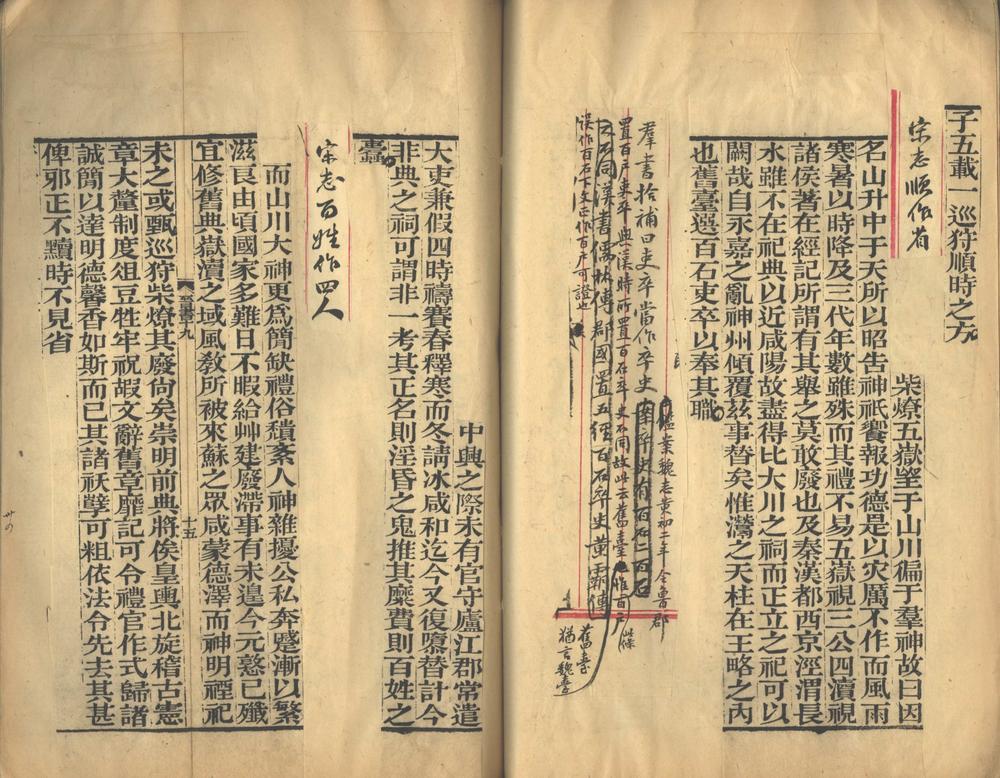 子五載一巡狩順時之方
宋志順作省
柴燎五嶽望于山川徧于羣神故曰因
名山升中于天所以昭告神祇饗報功德是以灾厲不作而風雨
寒暑以時降及三代年數雖殊而其禮不易五嶽視三公四瀆視
諸侯著在經記所謂有其舉之莫敢廢也及秦漢都西京涇渭長
水雖不在祀典以近咸陽故盡得比大川之祠而正立之祀可以
闕哉自永嘉之亂神州傾覆茲事替矣惟灊之天柱在王略之內
也舊臺選百石吏卒以奉其職
羣書拾補曰吏卒當作卒史案卒史有百石二百石
魏志黃初二年令魯郡
置百戶吏卒與漢時所置百石卒史不同故此云舊臺
之不同漢書儒林傳郡國置五經百石卒史黃霸傳
誤作百石下文正作百戶可證也
舊臺
猶言魏臺
中興之際未有官守廬江郡常遣
大吏兼假四時禱賽春釋寒而冬請冰咸和迄今又復隳替計今
非典之祠可謂非一考其正名則淫昏之鬼推其糜費則百姓之
蠹
宋志百姓作四人
而山川大神更爲簡缺禮俗穨紊人神雜擾公私奔蹙漸以繁
滋良由頃國家多難日不暇給艸建廢滯事有未遑今元憝已殲
宜修舊典嶽瀆之域風敎所被來蘇之眾咸蒙德澤而神明禋祀
晉書九
十五
未之或甄巡狩柴燎其廢尙矣崇明前典將俟皇輿北旋稽古憲
章大釐制度俎豆牲牢祝嘏文辭舊章靡記可令禮官作式歸諸
誠簡以達明德馨香如斯而已其諸祅孼可粗依法令先去其甚
俾邪正不黷時不見省